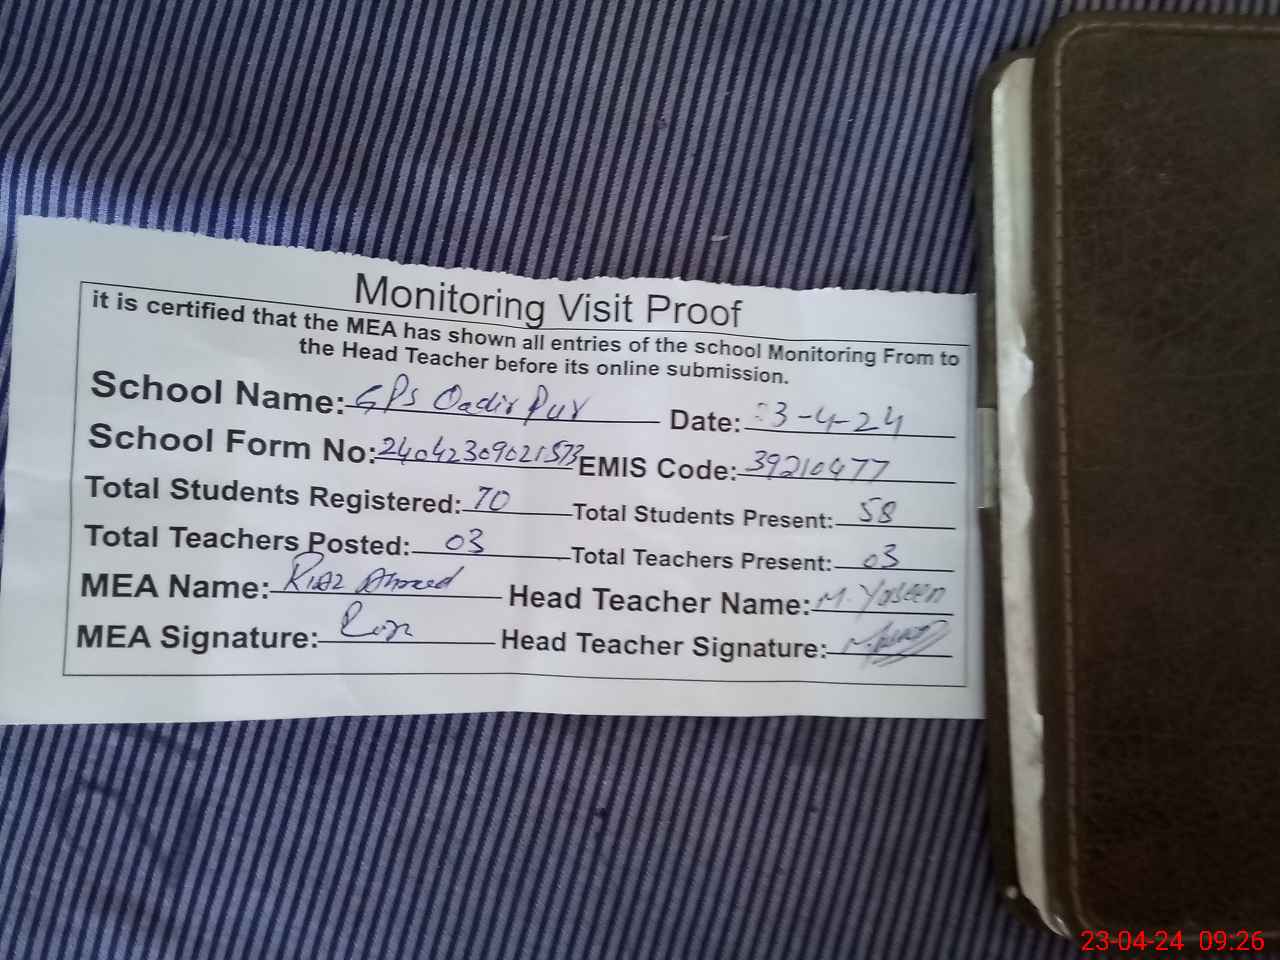 Monitoring Visit Proof
it is certified that the MEA has shown all entries of the school Monitoring From to
the Head Teacher before its online submission.
School Name: GPS Qadir Pur Date: 23-4-24
School Form No: 24042309021573 EMIS Code: 39210477
Total Students Registered: 70 Total Students Present: 58
Total Teachers Posted: 03 Total Teachers Present: 03
MEA Name: Riaz Ahmed Head Teacher Name: M. Yaseen
MEA Signature: Head Teacher Signature:
23-04-24 09:26